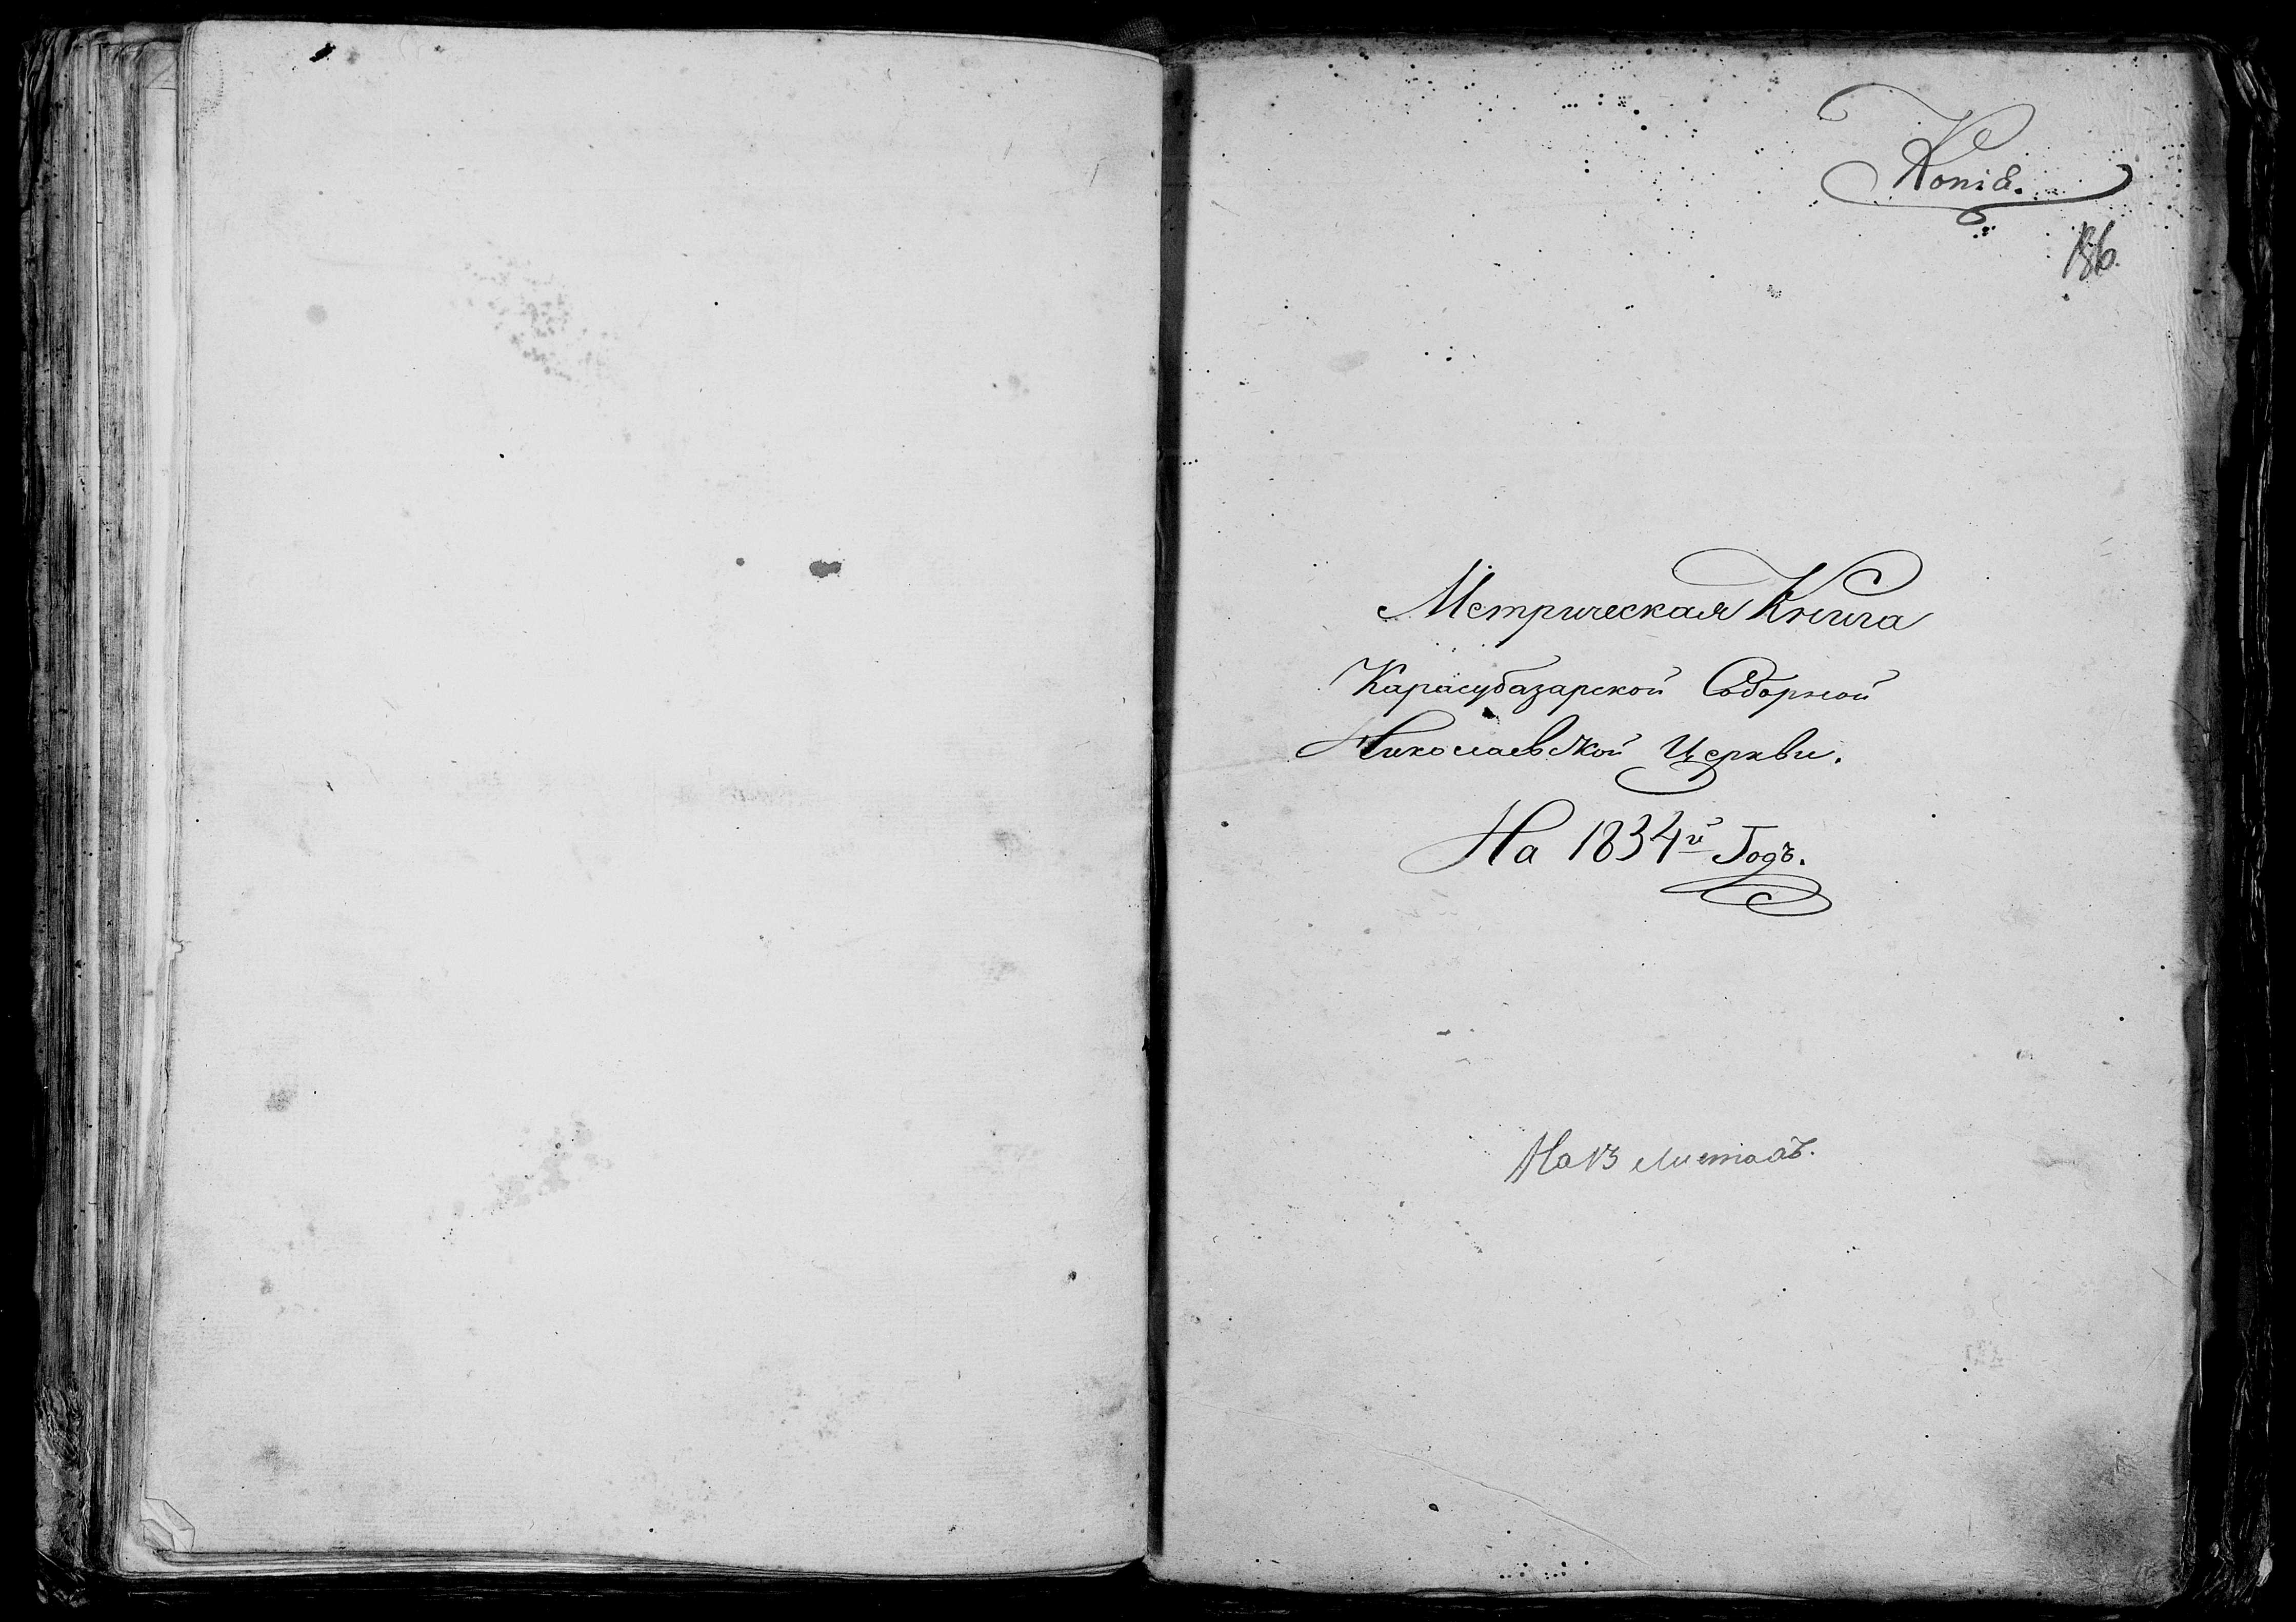 Копiя.
186.
Метрическая Книга
Карасубазарской Соборной
Николаевской Церкви.
На 1834й Годъ.
На 13 листахъ.